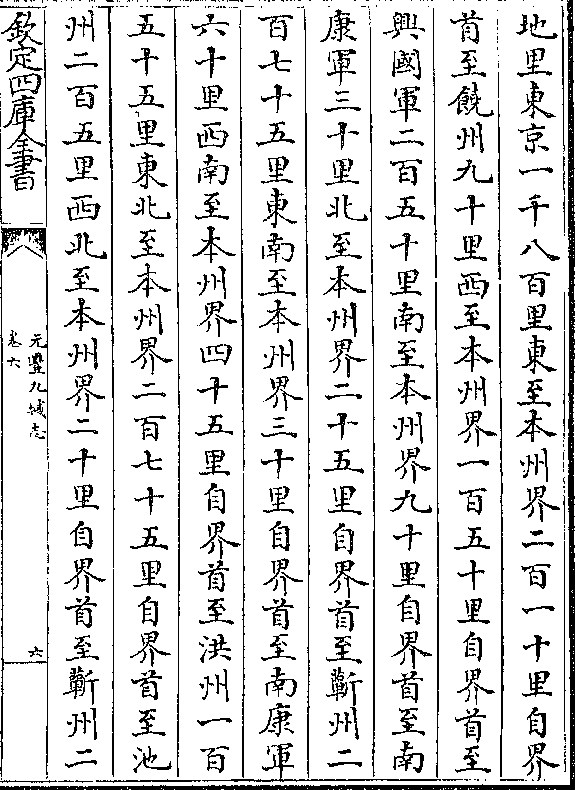 地里東京一千八百里東至本州界二百一十里自界
首至饒州九十里西至本州界一百五十里自界首至
興國軍二百五十里南至本州界九十里自界首至南
康軍三十里北至本州界二十五里自界首至蘄州二
百七十五里東南至本州界三十里自界首至南康軍
六十里西南至本州界四十五里自界首至洪州一百
五十五里東北至本州界二百七十五里自界首至池
州二百五里西北至本州界二十里自界首至蘄州二
欽定四庫全書
元豐九域志
卷六
六